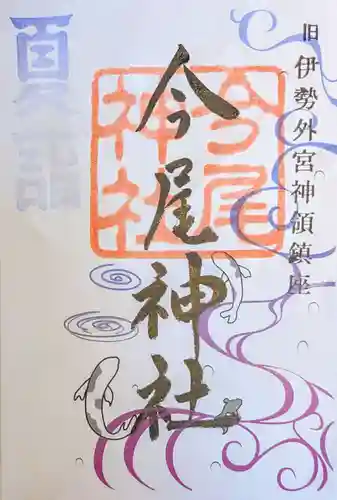 旧 伊勢外宮神領鎮座
今尾神社
今尾神社